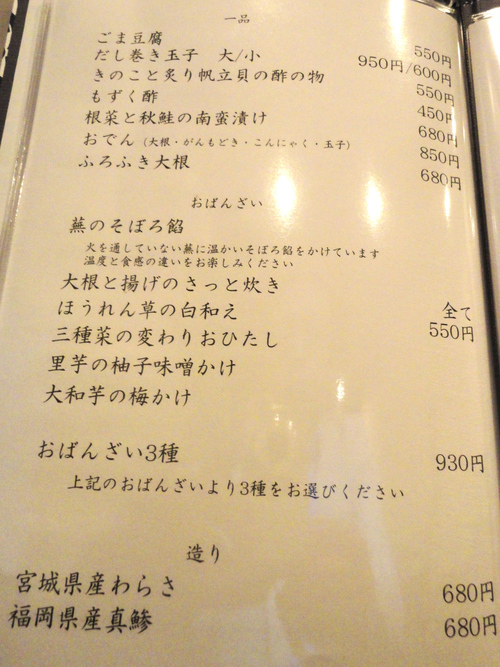 一品
ごま豆腐 550円
だし巻き玉子 大/小 950円/600円
きのこと炙り帆立貝の酢の物 550円
もずく酢 450円
根菜と秋鮭の南蛮漬け 680円
おでん（大根・がんもどき・こんにゃく・玉子） 850円
ふろふき大根 680円
おばんざい
蕪のそぼろ餡
火を通していない蕪に温かいそぼろ餡をかけています
温度と食感の違いをお楽しみください
大根と揚げのさっと炊き
ほうれん草の白和え 全て
三種菜の変わりおひたし 550円
里芋の柚子味噌かけ
大和芋の梅かけ
おばんざい3種 930円
上記のおばんざいより3種をお選びください
造り
宮城県産わらさ 680円
福岡県産真鯵 680円